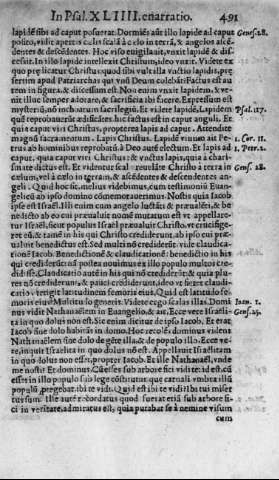 In Psal. XLIIII. enarratio. 491
lapidē sibi ad caput posuerat. Dormiēs aūt illo lapide ad caput Gene. 28.
posito, vidit apertū cœlū & scalā à cœlo in terrā, & angelos ascē
dentes & descendentes. Hoc viso euigilauit, vnxit lapidē & dis
cessit. In illo lapide intellexit Christum, ideo vnxit. Videte ex
quo prędicatur Christus quod sibi vult illa vnctio lapidis, præ
sertim apud Patriarchas qui vnū Deum colebāt? Factus est au
tem in figura, & discessum est. Non enim vnxit lapidem, & ve
nit illuc semper adorare, & sacrificia ibi facere. Expressum est
mysteriū, nō inchoatum sacrilegiū. Et videte lapidē, Lapidem Psal. 117.
quē reprobauerūt ædificātes, hic factus est in caput anguli. Et
quia caput viri Christus, propterea lapis ad caput. Attendite
magnū sacramentum. Lapis Christus. Lapidē viuum ait Pe- 1. Cor. 11.
trus ab hominibus reprobatū à Deo autē electum. Et lapis ad 1. Petr. 2.
caput, quia caput viri Christus: & vnctus lapis, quia à charis-
mate dictus est. Et videntur scalæ reuelāte Christo à terra in Genes. 28.
cœlum, vel à cœlo in terram, & ascēdentes & descendentes an
geli. Quid hoc sit, melius videbimus, cum testimoniū Euan-
gelicū ab ipso domino cōmemorauerimus. Nostis quia Iacob
ipse est Israël. Illi enim cum angelo luctāti & præualēti, & be
nedicto ab eo cui præualuit nomē mutatum est vt appellare-
tur Israël, sicut populus Israël præualuit Christo, vt crucifige-
ret eū, & tamē in his qui Christo crediderunt, ab ipso cui præ
ualuit benedictus est. Sed multi nō crediderūt: inde claudica-
tionē Iacob. Benedictionē & claudicationē: benedictio in his
qui crediderūt: scimus postea nouimus ex illo populo multos cre
didisse. Claudicatio autē in his qui nō crediderūt: & quia plu-
res nō crediderunt, & pauci crediderunt, ideo vt fieret claudi-
catio tetigit latitudinem femoris eius. Quid est latitudo fe-
moris eius? Multitudo generis. Videte ergo scalas illas. Domi Ioan. 1.
nus vidit Nathanaëlem in Euangelio, & ait, Ecce vere Israëli- Gene. 25.
ta in quo dolus non est. Sic enim dictum de ipso Iacob. Et erat
Iacob sine dolo habitās in domo. Hoc recolēs dominus videns
Nathanaëlem sine dolo de gēte illa & de populo illo. Ecce ve-
re, inquit Israëlita in quo dolus nō est. Appellauit Israëlitam
in quo dolus non esset, propter Iacob. Et ille Nathanaël, vnde
me nostis? Et dominus, Cū esses sub arbore fici vidi te: id est, cū
esses in illo populo sub lege cōstitutus, quæ carnali vmbra illū
populū, pregebat, ibi te vidi. Quid est ibi te vidi? Ibi tui miser
tus sum. Ille autē recordatus quod fuerat etiā sub arbore fi-
ci in veritate, admiratus est, quia putabat se à nemine visum
cum